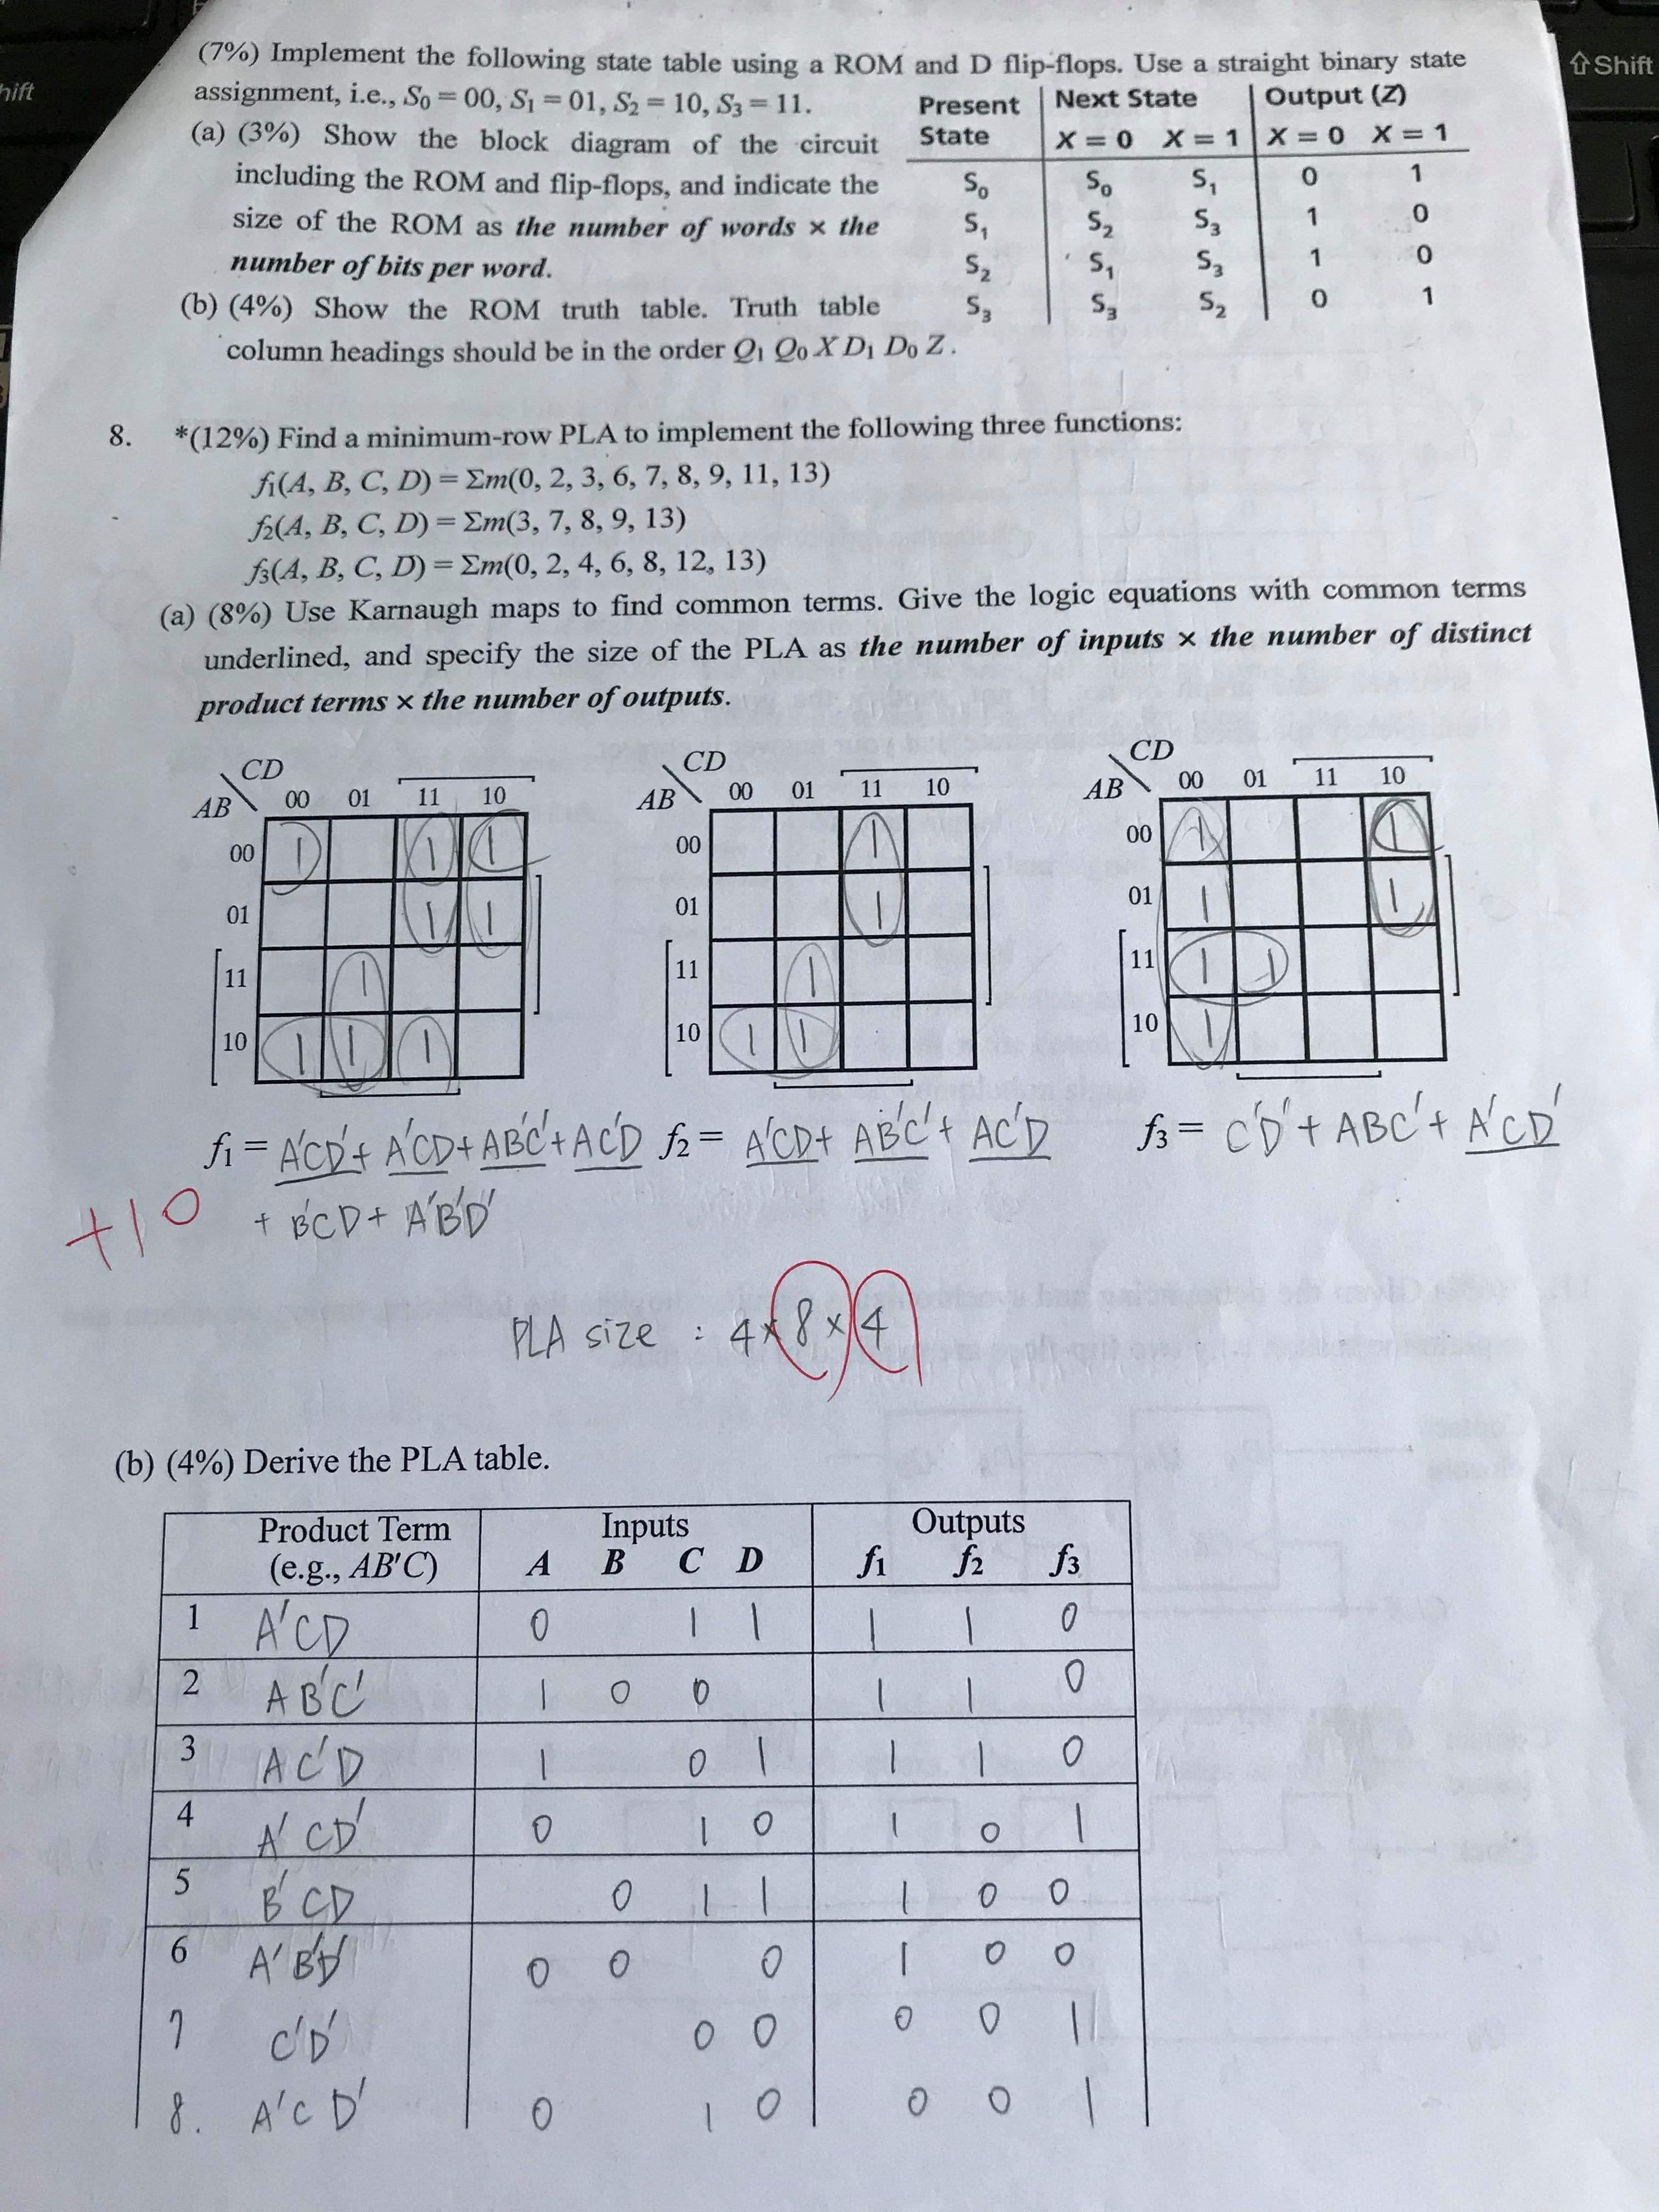 (7%) Implement the following state table using a ROM and D flip-flops. Use a straight binary state
assignment, i.e., S₀ = 00, S₁ = 01, S₂ = 10, S₃ = 11.
(a) (3%) Show the block diagram of the circuit
including the ROM and flip-flops, and indicate the
size of the ROM as the number of words × the
number of bits per word.
(b) (4%) Show the ROM truth table. Truth table
column headings should be in the order Q₁ Q₀ X D₁ D₀ Z.
Present Next State Output (Z)
State X = 0 X = 1 X = 0 X = 1
S₀ S₀ S₁ 0 1
S₁ S₂ S₃ 1 0
S₂ S₁ S₃ 1 0
S₃ S₃ S₂ 0 1
8. *(12%) Find a minimum-row PLA to implement the following three functions:
f₁(A, B, C, D) = Σm(0, 2, 3, 6, 7, 8, 9, 11, 13)
f₂(A, B, C, D) = Σm(3, 7, 8, 9, 13)
f₃(A, B, C, D) = Σm(0, 2, 4, 6, 8, 12, 13)
(a) (8%) Use Karnaugh maps to find common terms. Give the logic equations with common terms
underlined, and specify the size of the PLA as the number of inputs × the number of distinct
product terms × the number of outputs.
CD CD CD
AB 00 01 11 10 AB 00 01 11 10 AB 00 01 11 10
00 1 1 1 00 1 00 1 1
01 1 1 01 1 01 1 1
11 1 11 1 11 1 1
10 1 1 1 10 1 1 10 1
f₁ = A'CD' + A'CD + AB'C' + AC'D f₂ = A'CD + AB'C' + AC'D f₃ = C'D' + ABC' + A'CD'
+ B'CD + A'B'D'
+10
PLA size : 4×8×4
(b) (4%) Derive the PLA table.
Product Term Inputs Outputs
(e.g., AB'C) A B C D f₁ f₂ f₃
1 A'CD 0 1 1 1 1 0
2 AB'C' 1 0 0 1 1 0
3 AC'D 1 0 1 1 1 0
4 A'CD' 0 1 0 1 0 1
5 B'CD 0 1 1 1 0 0
6 A'B'D' 0 0 0 1 0 0
7 C'D' 0 0 0 0 1
8. A'CD' 0 1 0 0 0 1
Shift